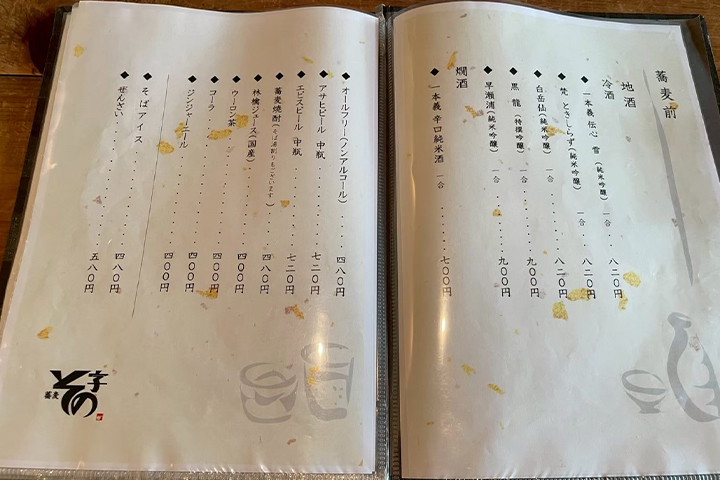 蕎麦前
地酒
冷酒
◆一本義 伝心 雪 (純米吟醸) 一合 ・・・・・ 八二〇円
◆梵 ときしらず(純米吟醸) 一合 ・・・・・ 八二〇円
◆白岳仙(純米吟醸) 一合 ・・・・・ 八二〇円
◆黒 龍(特撰吟醸) 一合 ・・・・・ 九〇〇円
◆早瀬浦(純米吟醸) 一合 ・・・・・ 九〇〇円
燗酒
◆一本義 辛口純米酒 一合 ・・・・・ 七〇〇円
◆オールフリー(ノンアルコール) ・・・・ 四八〇円
◆アサヒビール 中瓶 ・・・・・・・ 七二〇円
◆エビスビール 中瓶 ・・・・・・・ 七二〇円
◆蕎麦焼酎(そば湯割りもございます) ・・・ 四八〇円
◆林檎ジュース(国産) ・・・・・・・ 四八〇円
◆ウーロン茶 ・・・・・・・・・ 四〇〇円
◆コーラ ・・・・・・・・・・ 四〇〇円
◆ジンジャーエール ・・・・・・・ 四〇〇円
◆そばアイス ・・・・・・・・・ 四八〇円
◆ぜんざい ・・・・・・・・・ 五八〇円
蕎麦 その字